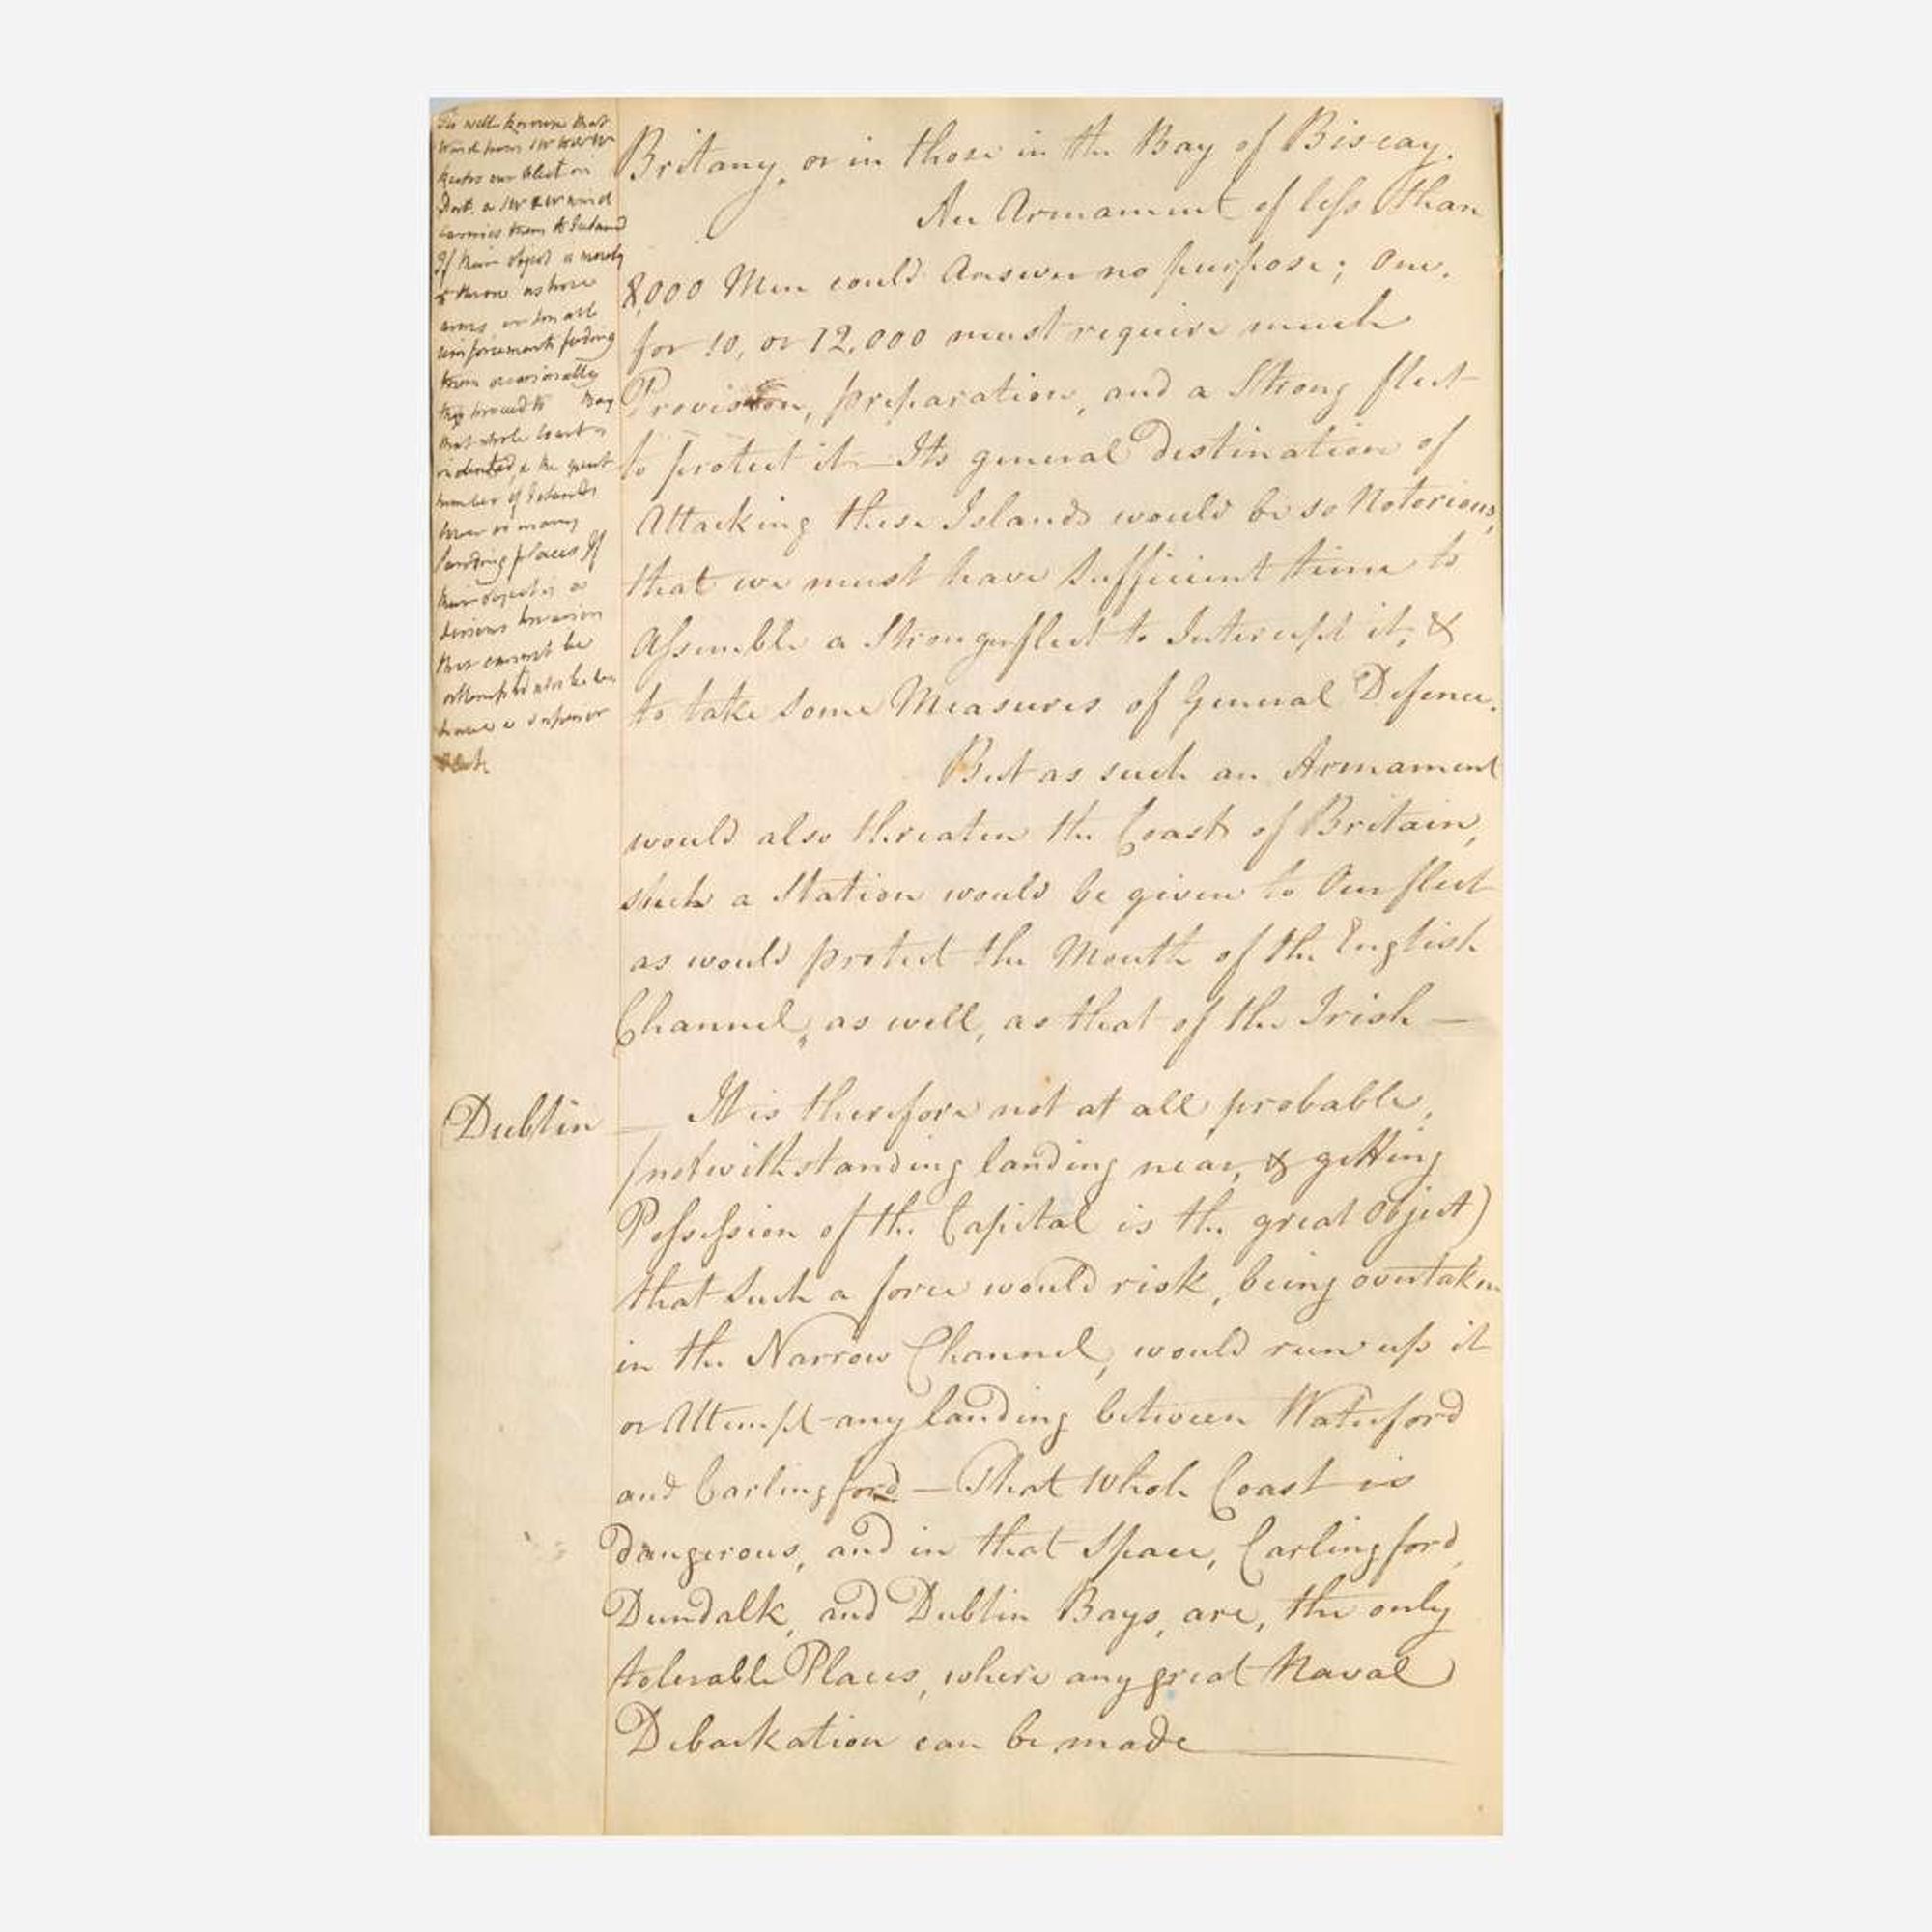 Tis well known that
wind from
keeps our fleet in
Port. a SW wind
carries them to Ireland
If their object is merely
to throw ashore
arms, or small
reinforcements feeding
them occasionally
they proceed to Bay
that whole Coast is
indented, & the great
number of Islands
landing places If
their object is a
serious Invasion
this cannot be
attempted
have a superior
fleet
Britany, or in those in the Bay of Biscay.
An Armament of less than
8,000 Men could Answer no purpose; One,
for 10, or 12,000 must require much
Provision, preparation, and a Strong fleet
to protect it — Its general Destination of
Attacking these Islands would be so Notorious,
that we must have Sufficient time to
Assemble a Stronger fleet to Intercept it, &
to take some Measures of General Defence.
But as such an Armament
would also threaten the Coast of Britain,
such a Station would be given to Our fleet
as would protect the Mouth of the English
Channel, as well, as that of the Irish —
Dublin — It is therefore not at all probable,
(notwithstanding landing near, & getting
Possession of the Capital is the great Object)
that such a force would risk, being overtaken
in the Narrow Channel, would run up it
or Attempt any landing between Waterford
and Carlingford — That whole Coast is
dangerous, and in that Space, Carlingford,
Dundalk, and Dublin Bays, are, the only
tolerable Places, where any great Naval
Debarkation can be made